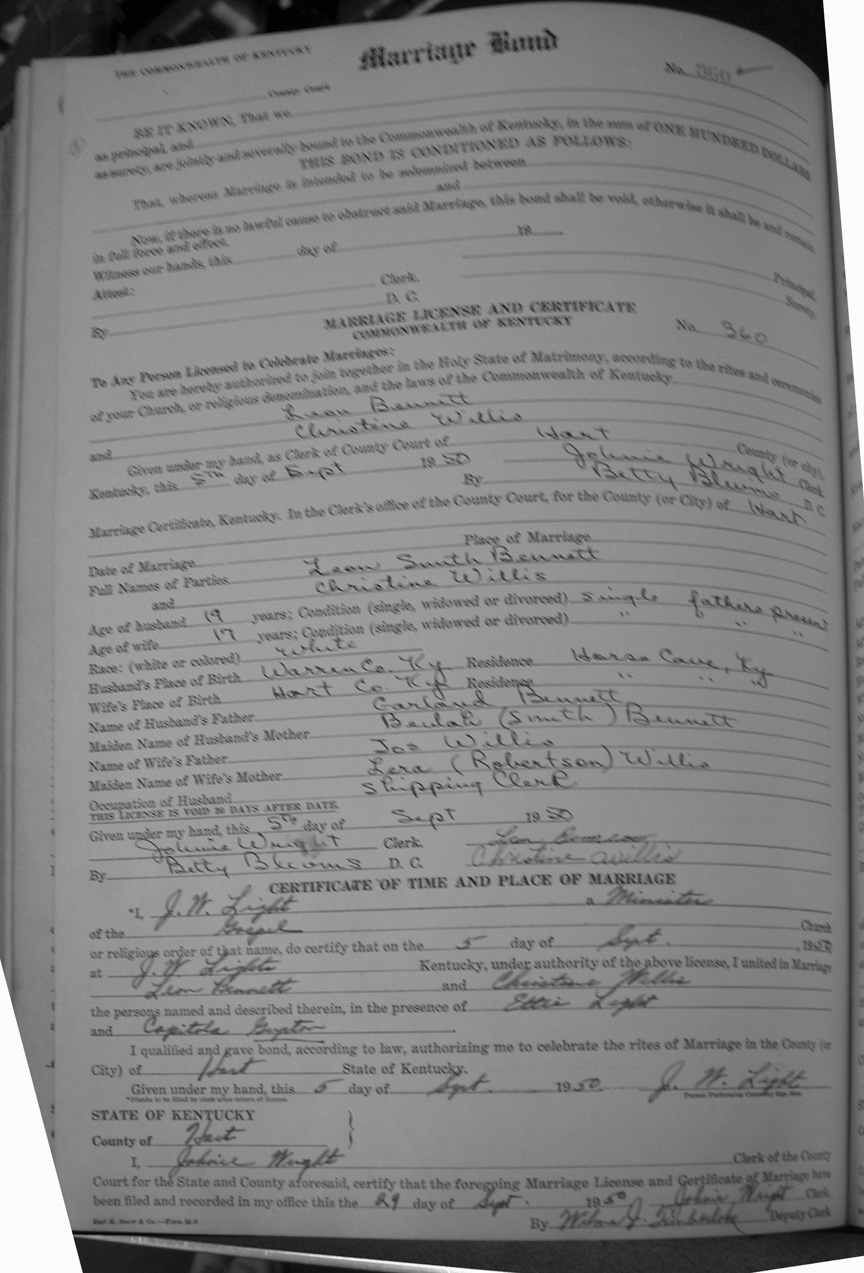 THE COMMONWEALTH OF KENTUCKY
Marriage Bond
No. 360
County Court
BE IT KNOWN, That we
as principal, and
as surety, are jointly and severally bound to the Commonwealth of Kentucky, in the sum of ONE HUNDRED DOLLARS
THIS BOND IS CONDITIONED AS FOLLOWS:
That, whereas Marriage is intended to be solemnized between
and
Now, if there is no lawful cause to obstruct said Marriage, this bond shall be void, otherwise it shall be and remain
in full force and effect.
Witness our hands, this day of 19
Attest: Principal
Clerk. Surety.
By D. C.
MARRIAGE LICENSE AND CERTIFICATE
COMMONWEALTH OF KENTUCKY
No. 360
To Any Person Licensed to Celebrate Marriages:
You are hereby authorized to join together in the Holy State of Matrimony, according to the rites and ceremonies
of your Church, or religious denomination, and the laws of the Commonwealth of Kentucky
Leon Bennett
and Christine Willis
Given under my hand, as Clerk of County Court of Hart County (or city),
Kentucky, this 5th day of Sept 1950 Johnie Wright Clerk
By Betty Blevins D. C.
Marriage Certificate, Kentucky. In the Clerk's office of the County Court, for the County (or City) of Hart
Date of Marriage Place of Marriage
Full Names of Parties Leon Smith Bennett
and Christine Willis
Age of husband 19 years; Condition (single, widowed or divorced) single fathers present
Age of wife 17 years; Condition (single, widowed or divorced) " " "
Race: (white or colored) white
Husband's Place of Birth Warren Co. Ky Residence Horse Cave, Ky
Wife's Place of Birth Hart Co. Ky Residence " " "
Name of Husband's Father Garland Bennett
Maiden Name of Husband's Mother Beulah (Smith) Bennett
Name of Wife's Father Joe Willis
Maiden Name of Wife's Mother Lera (Robertson) Willis
Occupation of Husband Shipping Clerk
THIS LICENSE IS VOID 30 DAYS AFTER DATE.
Given under my hand, this 5th day of Sept 1950
Johnie Wright Clerk. Leon Bennett
By Betty Blevins D. C. Christine Willis
CERTIFICATE OF TIME AND PLACE OF MARRIAGE
*I, J. W. Light a Minister
of the Gospel Church
or religious order of that name, do certify that on the 5 day of Sept. 1950
at J. W. Lights Kentucky, under authority of the above license, I united in Marriage
Leon Bennett and Christine Willis
the persons named and described therein, in the presence of Ettie Light
and Capitola Gupton
I qualified and gave bond, according to law, authorizing me to celebrate the rites of Marriage in the County (or
City) of Hart State of Kentucky.
Given under my hand, this 5 day of Sept. 1950. J. W. Light
STATE OF KENTUCKY
County of Hart
I, Johnie Wright Clerk of the County
Court for the State and County aforesaid, certify that the foregoing Marriage License and Certificate of Marriage have
been filed and recorded in my office this the 29 day of Sept. 1950 Johnie Wright Clerk
By Wilma J. Deputy Clerk